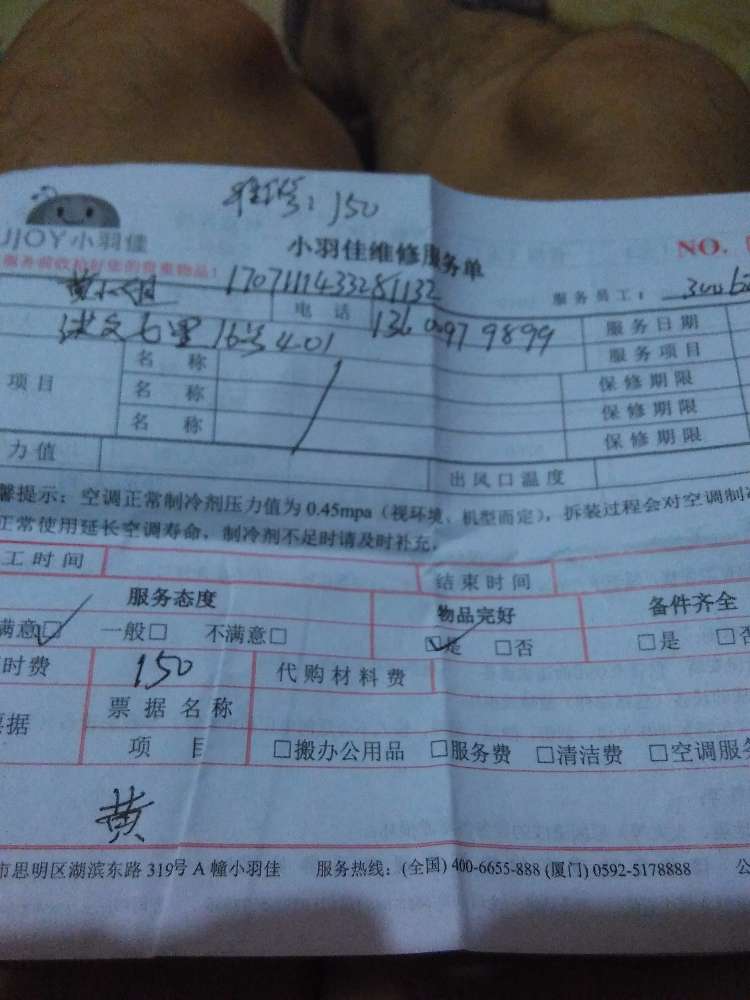 150
UJOY小羽佳
小羽佳维修服务单
NO.
服务前收拾好您的贵重物品!
黄小姐 170711143328 1132
服务员工:
电话 136 0097 9899 服务日期
洪文七里16号401
服务项目
项目 名称 保修期限
名称 保修期限
名称 保修期限
力值 出风口温度
馨提示:空调正常制冷剂压力值为0.45mpa(视环境、机型而定),拆装过程会对空调制
正常使用延长空调寿命,制冷剂不足时请及时补充,
工时间 结束时间
服务态度 物品完好 备件齐全
满意☑ 一般□ 不满意□ ☑是 □否 □是 □否
时费 150 代购材料费
票据 票据名称
项目 □搬办公用品 □服务费 □清洁费 □空调服
黄
市思明区湖滨东路319号A幢小羽佳 服务热线:(全国)400-6655-888 (厦门)0592-5178888 公